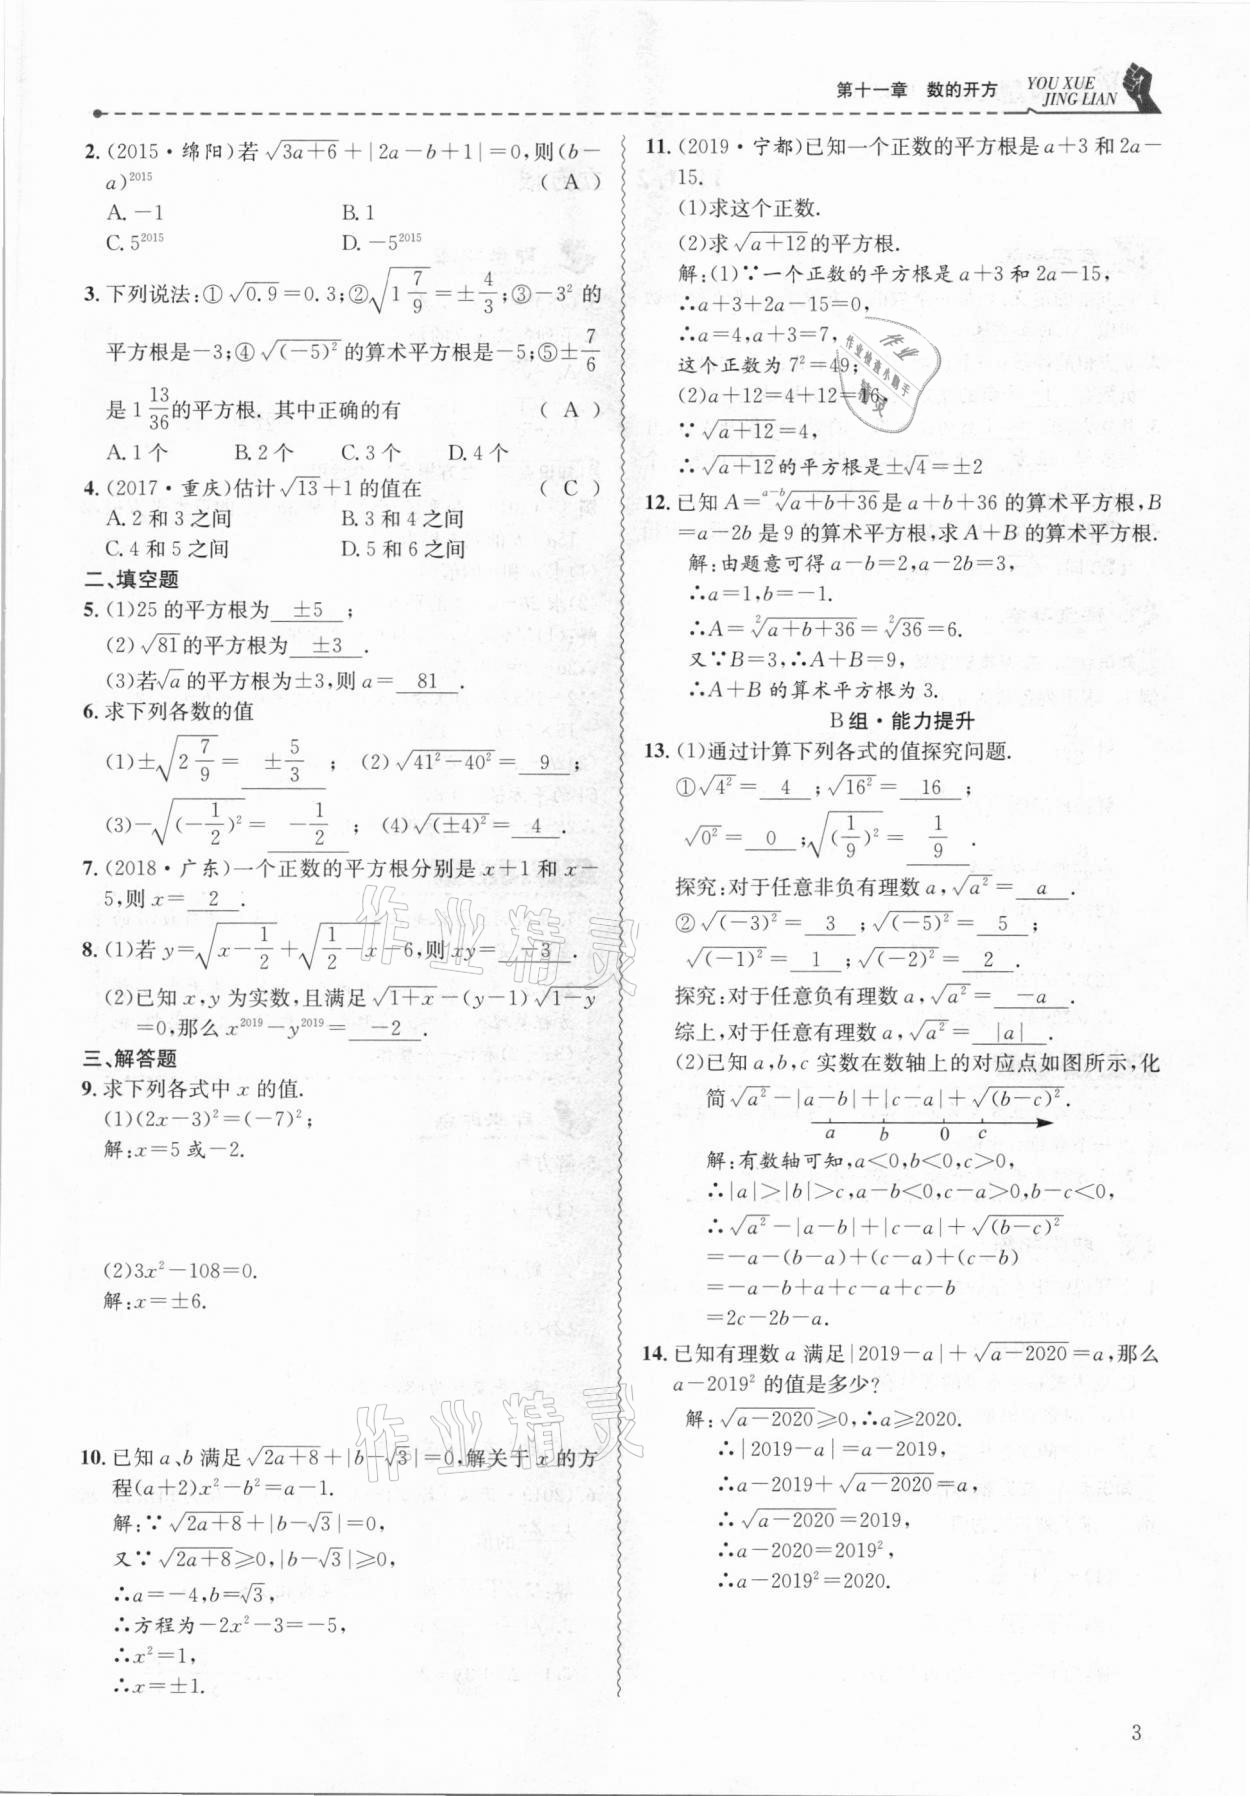 第十一章 数的开方
YOU XUE
JING LIAN
2. (2015·绵阳)若√(3a+6)+|2a-b+1|=0,则(b-
a)²⁰¹⁵ ( A )
A. -1 B. 1
C. 5²⁰¹⁵ D. -5²⁰¹⁵
3. 下列说法:①√0.9=0.3;②√(1 7/9)=±4/3;③-3²的
平方根是-3;④√(-5)²的算术平方根是-5;⑤±7/6
是1 13/36的平方根. 其中正确的有 ( A )
A. 1个 B. 2个 C. 3个 D. 4个
4. (2017·重庆)估计√13+1的值在 ( C )
A. 2和3之间 B. 3和4之间
C. 4和5之间 D. 5和6之间
二、填空题
5. (1)25的平方根为 ±5 ;
(2)√81的平方根为 ±3 .
(3)若√a的平方根为±3,则a= 81 .
6. 求下列各数的值
(1)±√(2 7/9)= ±5/3 ; (2)√(41²-40²)= 9 ;
(3)-√(-1/2)²= -1/2 ; (4)√(±4)²= 4 .
7. (2018·广东)一个正数的平方根分别是x+1和x-
5,则x= 2 .
8. (1)若y=√(x-1/2)+√(1/2-x)-6,则xy= -3 .
(2)已知x,y为实数,且满足√(1+x)-(y-1)√(1-y)
=0,那么x²⁰¹⁹-y²⁰¹⁹= -2 .
三、解答题
9. 求下列各式中x的值.
(1)(2x-3)²=(-7)²;
解:x=5或-2.
(2)3x²-108=0.
解:x=±6.
10. 已知a、b满足√(2a+8)+|b-√3|=0,解关于x的方
程(a+2)x²-b²=a-1.
解:∵√(2a+8)+|b-√3|=0,
又∵√(2a+8)≥0,|b-√3|≥0,
∴a=-4,b=√3,
∴方程为-2x²-3=-5,
∴x²=1,
∴x=±1.
11. (2019·宁都)已知一个正数的平方根是a+3和2a-
15.
(1)求这个正数.
(2)求√(a+12)的平方根.
解:(1)∵一个正数的平方根是a+3和2a-15,
∴a+3+2a-15=0,
∴a=4,a+3=7,
这个正数为7²=49;
(2)a+12=4+12=16,
∵√(a+12)=4,
∴√(a+12)的平方根是±√4=±2
12. 已知A=ᵃ⁻ᵇ√(a+b+36)是a+b+36的算术平方根,B
=a-2b是9的算术平方根,求A+B的算术平方根.
解:由题意可得a-b=2,a-2b=3,
∴a=1,b=-1.
∴A=²√(a+b+36)=²√36=6.
又∵B=3,∴A+B=9,
∴A+B的算术平方根为3.
B组·能力提升
13. (1)通过计算下列各式的值探究问题.
①√4²= 4 ;√16²= 16 ;
√0²= 0 ;√(1/9)²= 1/9 .
探究:对于任意非负有理数a,√a²= a .
②√(-3)²= 3 ;√(-5)²= 5 ;
√(-1)²= 1 ;√(-2)²= 2 .
探究:对于任意负有理数a,√a²= -a .
综上,对于任意有理数a,√a²= |a| .
(2)已知a,b,c实数在数轴上的对应点如图所示,化
简√a²-|a-b|+|c-a|+√(b-c)².
a b 0 c
解:有数轴可知,a<0,b<0,c>0,
∴|a|>|b|>c,a-b<0,c-a>0,b-c<0,
∴√a²-|a-b|+|c-a|+√(b-c)²
=-a-(b-a)+(c-a)+(c-b)
=-a-b+a+c-a+c-b
=2c-2b-a.
14. 已知有理数a满足|2019-a|+√(a-2020)=a,那么
a-2019²的值是多少?
解:√(a-2020)≥0,∴a≥2020.
∴|2019-a|=a-2019,
∴a-2019+√(a-2020)=a,
∴√(a-2020)=2019,
∴a-2020=2019²,
∴a-2019²=2020.
作业
作业检查小助手
精灵
作业精灵
作业精灵
3